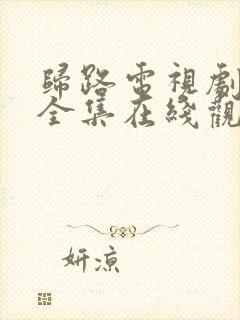 歸路電視劇
全集在綫觀
妍涼